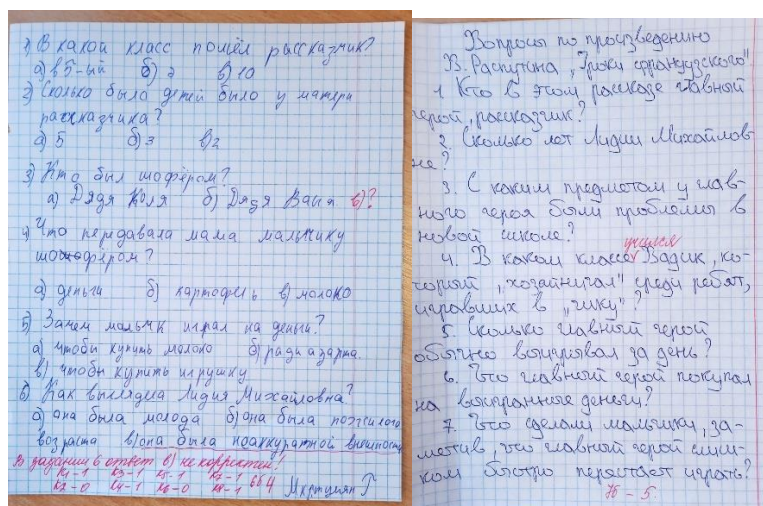 1) В какой класс пошёл рассказчик?
а) в 5-ый б) 2 в) 10
2) Сколько было детей было у матери
рассказчика?
а) 5 б) 3 в) 2
3) Кто был шофёром?
а) Дядя Коля б) Дядя Ваня в)?
4) Что передавала мама мальчику
шофёром?
а) деньги б) картофель в) молоко
5) Зачем мальчк играл на деньги?
а) чтобы купить молоко б) ради азарта
в) чтобы купить игрушку
6) Как выглядила Лидия Михайловна?
а) она была молода б) она была пожилого
возраста в) она была неаккуратной внешности
В задании 6 ответ в) не корректен!
К1-1 К3-1 К5-1 К7-1
К2-0 К4-1 К6-0 К8-1 6б 4 Мкртчян Г
Вопросы по произведению
В. Распутина „Уроки французского"
1. Кто в этом рассказе главный
герой, рассказчик?
2. Сколько лет Лидии Михайлов-
не?
3. С каким предметом у глав-
ного героя были проблемы в
новой школе?
учился
4. В каком классе Вадик, ко-
торый „хозайничал" среди ребят,
игравших в „чику"?
5. Сколько главный герой
обычно выигрывал за день?
6. Что главный герой покупал
на выигранные деньги?
7. Что сделали мальчики, за-
метив, что главный герой слиш-
ком быстро перестает играть?
7б - 5